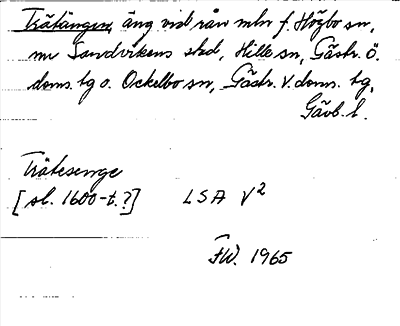 Trätängen, äng vid rån mln f. Högbo sn,
nu Sandvikens stad, Hille sn, Gästr. ö.
doms. tg o. Ockelbo sn, Gästr. v. doms. tg,
Gävb. l.
Trätesenge
[sl. 1600-t.?] LSA V2
FW. 1965